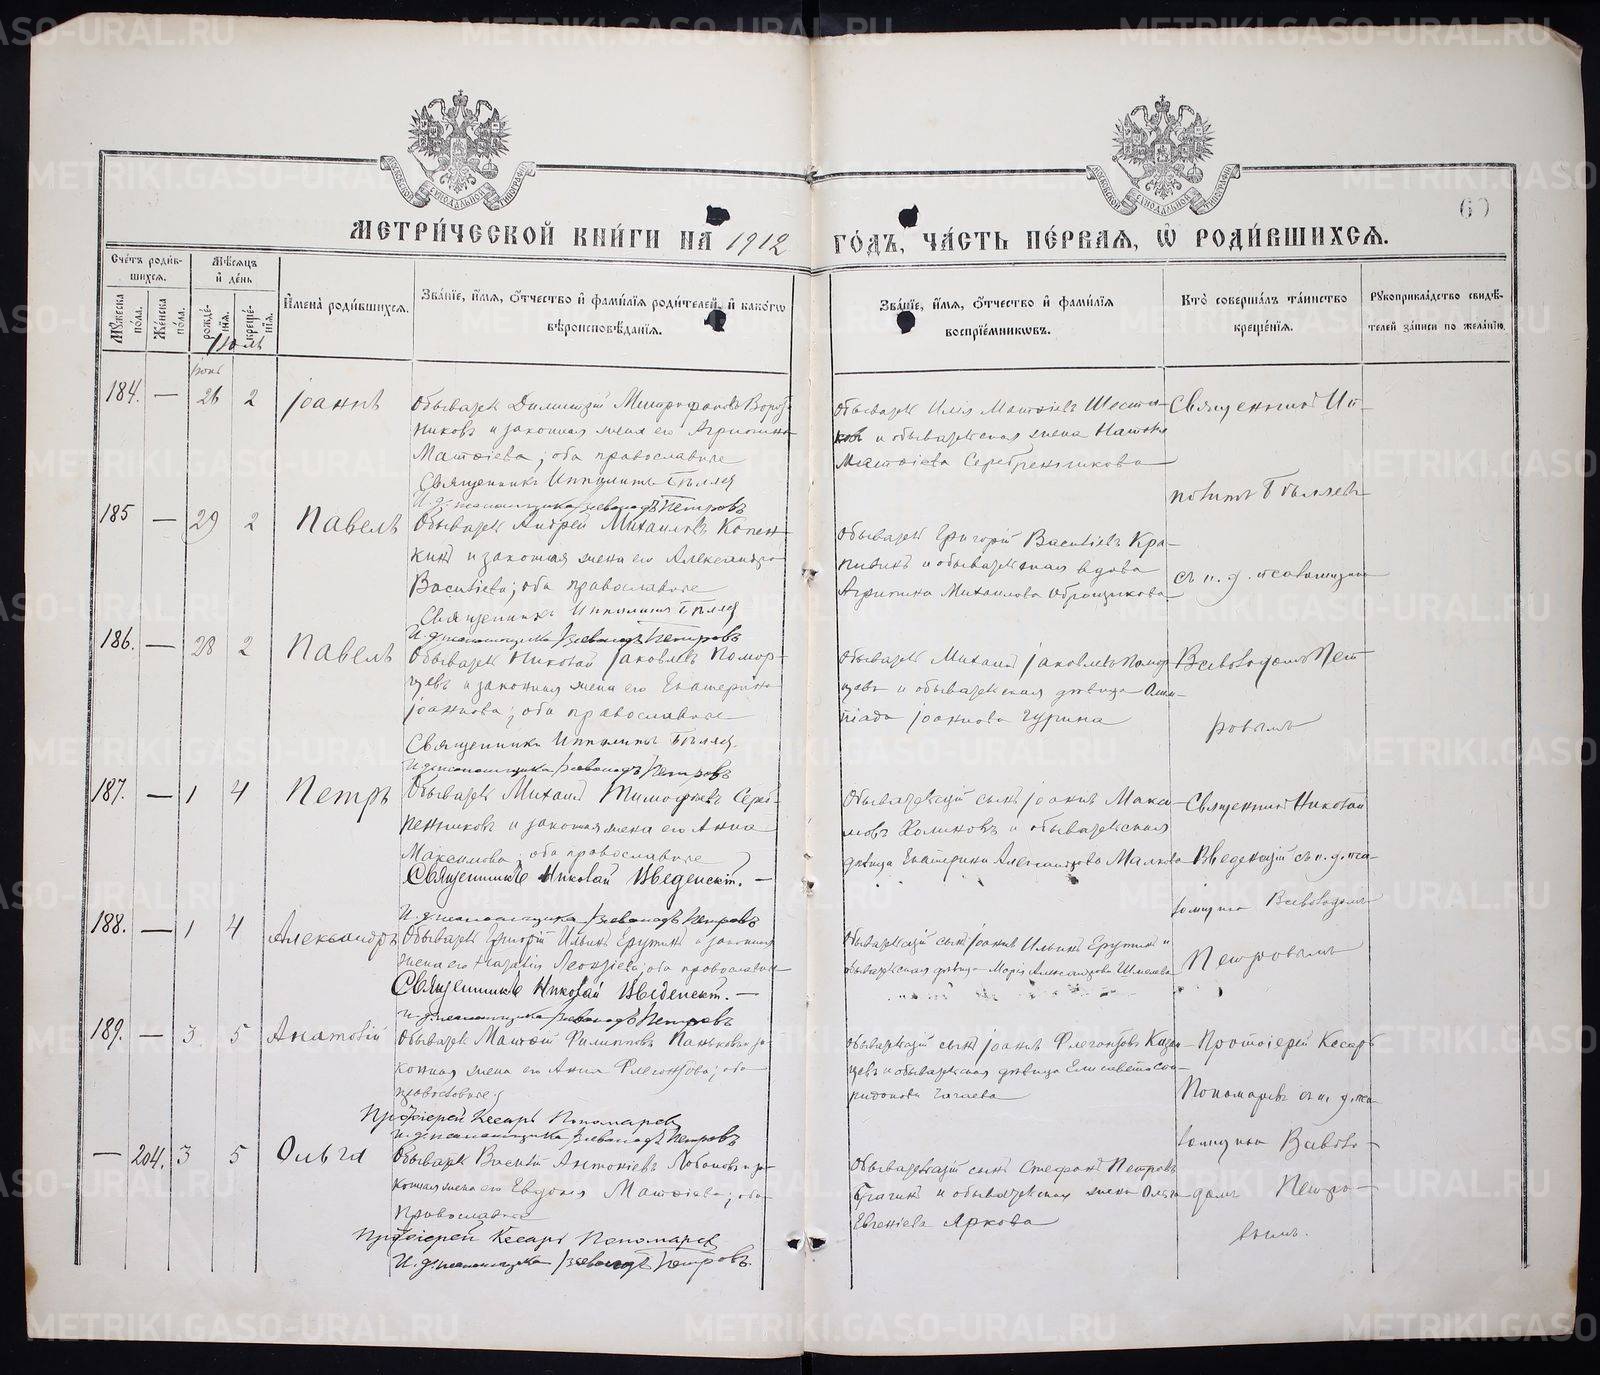 МЕТРИ́ЧЕСКОЙ КНИ́ГИ НА 1912 ГО́ДЪ, ЧА́СТЬ ПЕ́РВАЯ, Ѡ РОДИ́ВШИХСЯ.
60
Сче́тъ роди́в-
шихся.
Мѣ́сяцъ
и де́нь
Му́жеска по́ла.
Же́нска по́ла.
рожде́-
нія.
креще́-
нія.
Имена́ роди́вшихся.
Зва́ніе, и́мя, о́тчество и фами́лія роди́телей, и како́гѡ
вѣроисповѣ́данія.
Зва́ніе, и́мя, о́тчество и фами́лія
воспріе́мниковъ.
Кто̀ соверша́лъ та́инство
креще́нія.
Рукоприкла́дство свидѣ́-
телей за́писи по жела́нію.
Іюль
184. — 26 2 Іоаннъ
Обыватель Димитрій Митрофановъ
никовъ и законная жена его Агрипина
Матѳіева, оба православные
Священникъ Ипполитъ Бѣляев
И. д. псаломщика Всеволодъ Петровъ
Обыватель Илія Матѳіевъ
ковъ и обывательская жена
Матѳіева Серебренникова
Священникъ Ип-
политъ Бѣляевъ
185 — 29 2 Павелъ
Обыватель Андрей Михаиловъ Копен-
кинъ и законная жена его Александра
Васильева; оба православные
Священникъ Ипполитъ Бѣляев
И. д. псаломщика Всеволодъ Петровъ
Обыватель Григорій Васильевъ Кра-
пивинъ и обывательская вдова
Агрипина Михаилова Образцикова
съ и. д. псаломщика
186. — 28 2 Павелъ
Обыватель Николай Іаковлевъ Помор-
цевъ и законная жена его Екатерина
Іоаннова; оба православные
Священникъ Ипполитъ Бѣляев
И. д. псаломщика Всеволодъ Петровъ
Обыватель Михаилъ Іаковлевъ Помор-
цевъ и обывательская дѣвица Олим-
піада Іоаннова Гурина
Всеволодомъ Пет-
ровымъ
187. — 1 4 Петръ
Обыватель Михаилъ Тимофѣевъ Сереб-
ренниковъ и законная жена его Анна
Максимова; оба православные
Священникъ Николай Введенскій. —
И. д. псаломщика Всеволодъ Петровъ
Обывательскій сынъ Іоаннъ Макси-
мовъ Холиновъ и обывательская
дѣвица Екатерина Александрова Малкова
Священникъ Николай
Введенскій съ и. д. пса-
ломщика Всеволодомъ
Петровымъ
188. — 1 4 Александръ
Обыватель Григорій Ильинъ Ерутинъ и законная
жена его Наталія Леонтіева; оба православные
Священникъ Николай Введенскій. —
И. д. псаломщика Всеволодъ Петровъ
Обывательскій сынъ Іоаннъ Ильинъ Ерутинъ и
обывательская дѣвица Марія Александрова Шмелева
189. — 3. 5 Анатолій
Обыватель Матѳій Филипповъ Паньковъ и за-
конная жена его Анна Флегонтова; оба
православные
Протоіерей Кесарь Пономаревъ
И. д. псаломщика Всеволодъ Петровъ
Обывательскій сынъ Іоаннъ Флегонтовъ Казан-
цевъ и обывательская дѣвица Елисавета Спи-
ридонова
Протоіерей Кесарь
Пономаревъ съ и. д. пса-
ломщика Всеволо-
домъ Петро-
вымъ.
— 204. 3 5 Ольга
Обыватель Василій Антоніевъ Лобановъ и за-
конная жена его Евдокія Матѳіева; оба
православные
Протоіерей Кесарь Пономаревъ
И. д. псаломщика Всеволодъ Петровъ.
Обывательскій сынъ Стефанъ Петровъ
и обывательская жена Ольга
Евгеніева Яркова